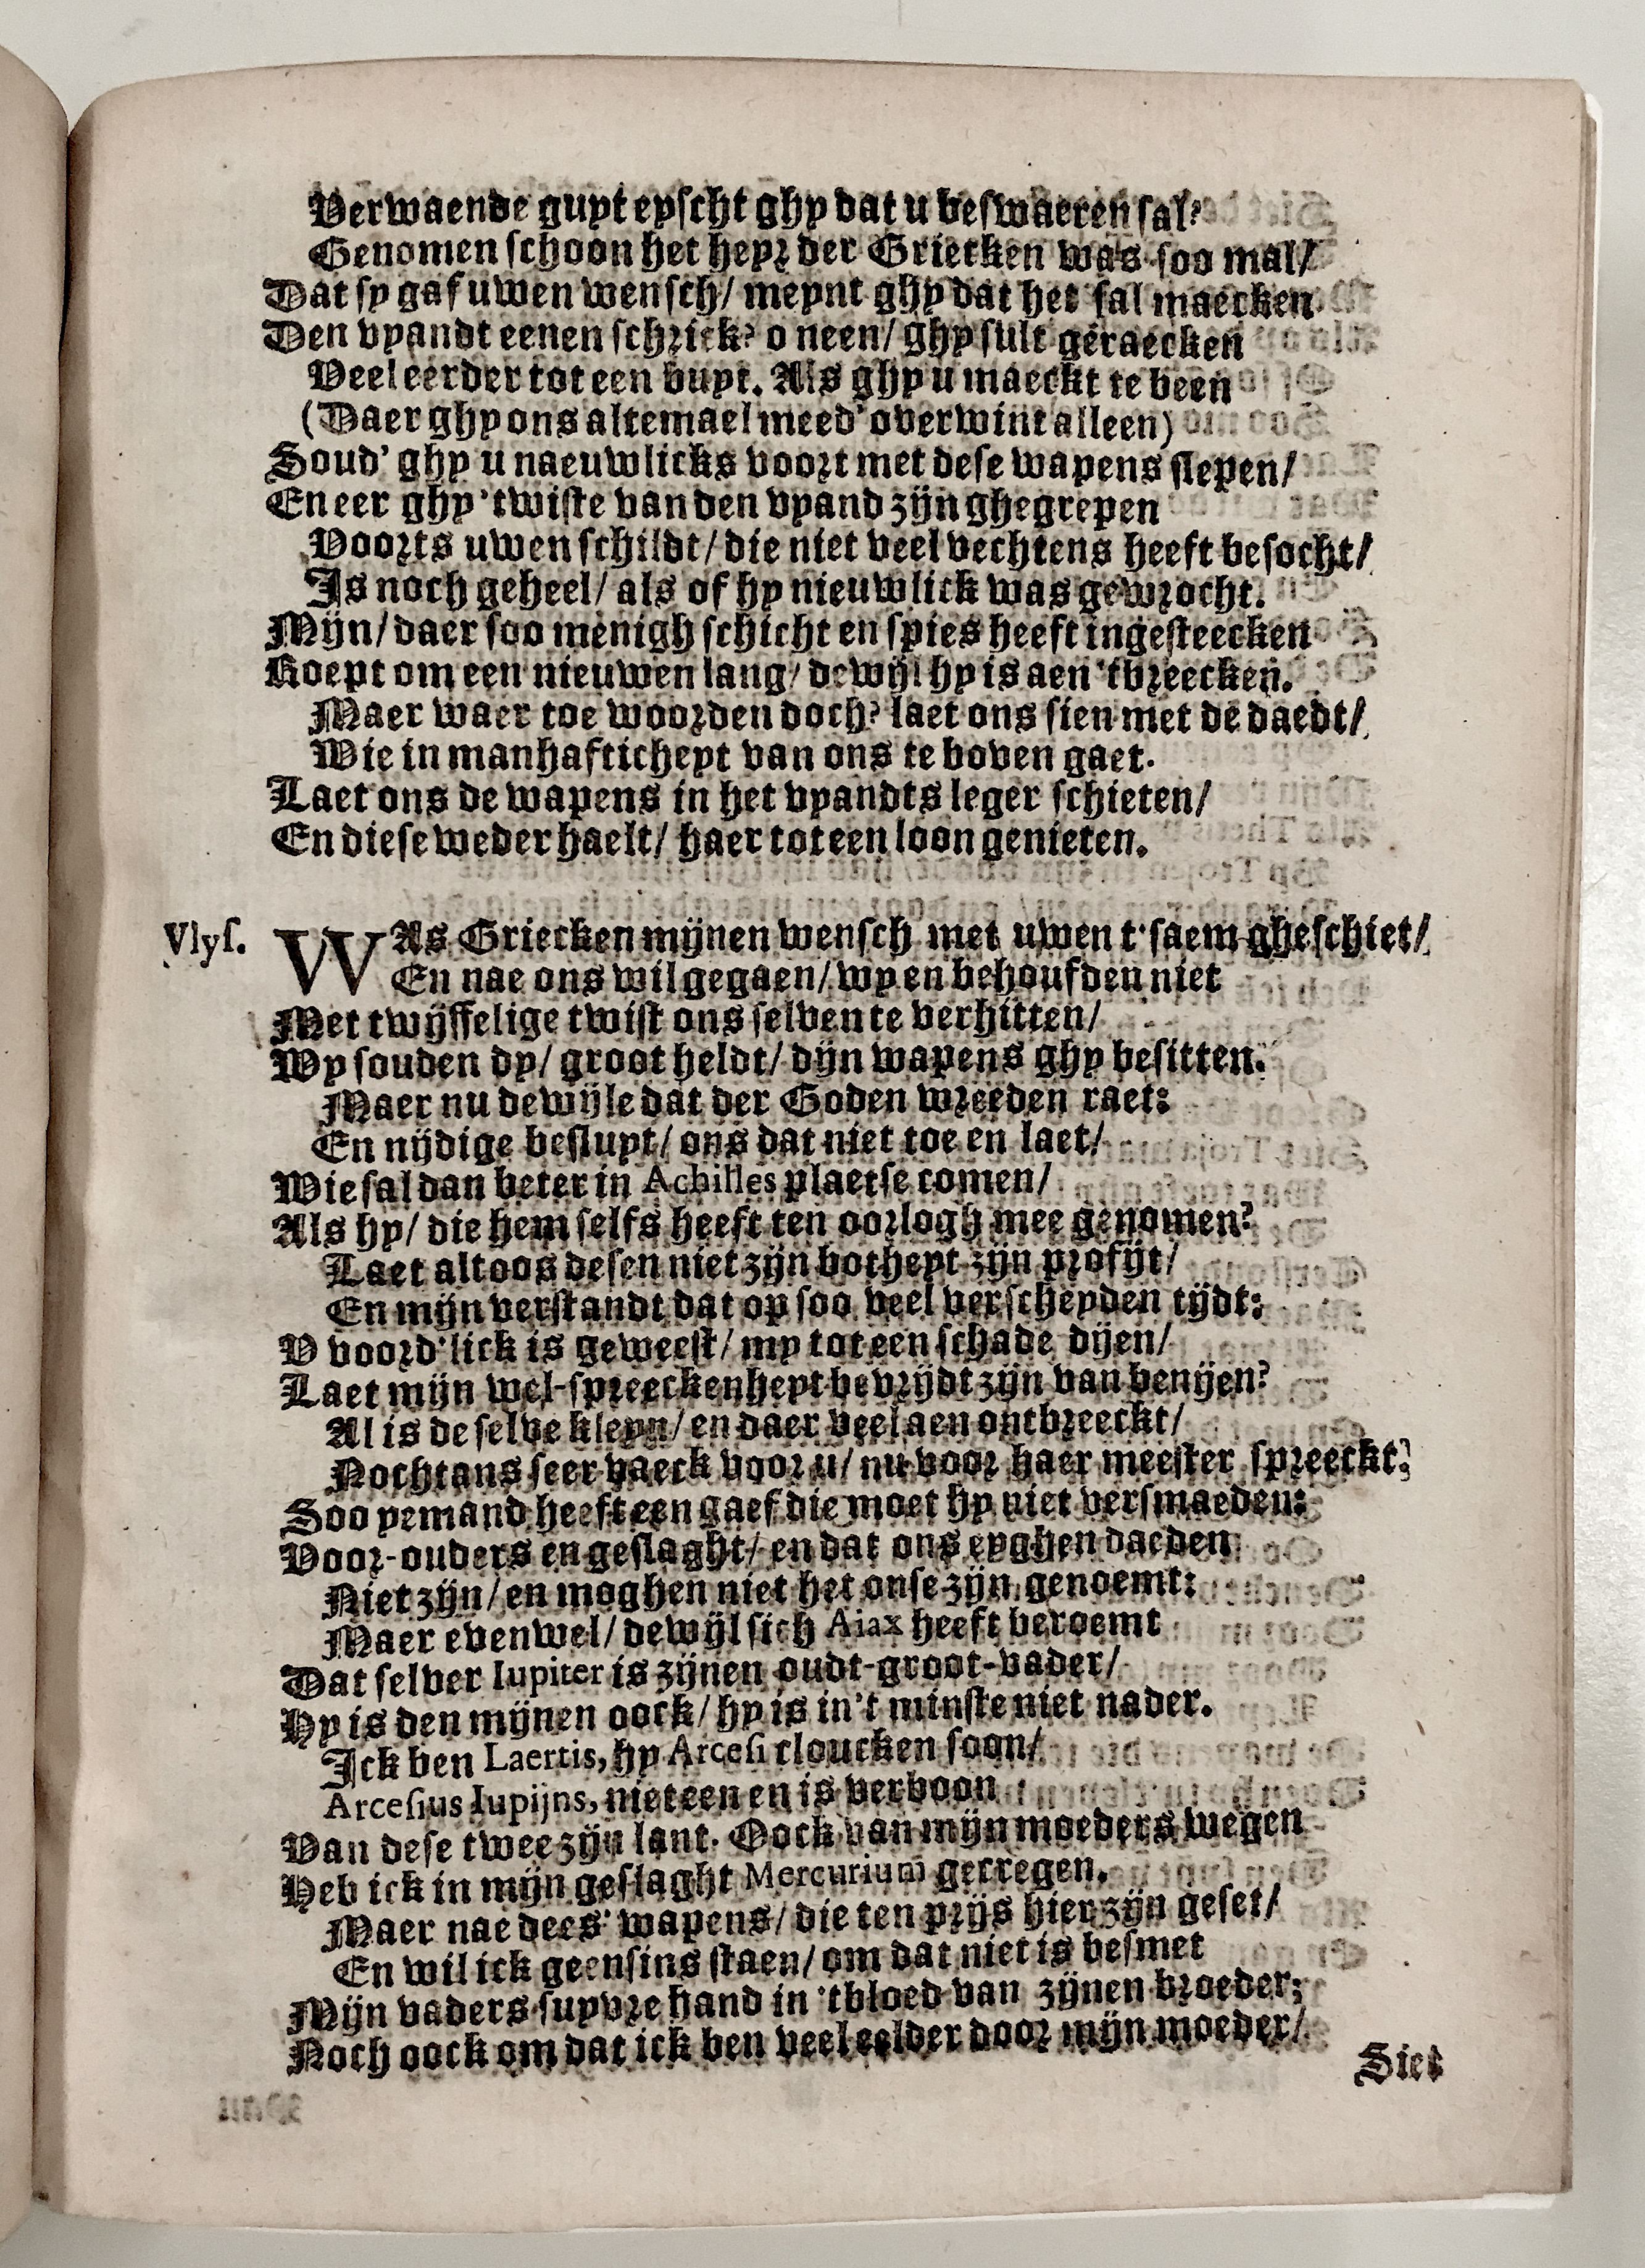 Verwaende guyt eyscht ghy dat u beswaeren sal?
Genomen schoon het heyr der Griecken was soo mal/
Dat sy gaf uwen wensch/ meynt ghy dat het sal maecken
Den vyandt eenen schrick? o neen/ ghy sult geraecken
Veel eerder tot een buyt. Als ghy u maeckt te been
(Daer ghy ons altemael meed' overwint alleen)
Soud' ghy u naeuwlicks voort met dese wapens slepen/
En eer ghy 'twiste van den vyand zijn ghegrepen
Voorts uwen schildt/ die niet veel vechtens heeft besocht/
Is noch geheel/ als of hy nieuwlick was gewrocht.
Mijn/ daer soo menigh schicht en spies heeft ingesteecken
Roept om een nieuwen lang/ dewijl hy is aen 'tbreecken.
Maer waer toe woorden doch? laet ons sien met de daedt/
Wie in manhafticheyt van ons te boven gaet.
Laet ons de wapens in het vyandts leger schieten/
En diese weder haelt/ haer tot een loon genieten.
Vlys. WAs Griecken mijnen wensch met uwen t'saem gheschiet/
En nae ons wil gegaen/ wy en behoufden niet
Met twijffelige twist ons selven te verhitten/
Wy souden dy/ groot heldt/ dijn wapens ghy besitten.
Maer nu dewijle dat der Goden wreeden raet:
En nijdige besluyt/ ons dat niet toe en laet/
Wie sal dan beter in Achilles plaetse comen/
Als hy/ die hem selfs heeft ten oorlogh mee genomen?
Laet altoos desen niet zijn botheyt zijn profijt/
En mijn verstandt dat op soo veel verscheyden tijdt:
V voord'lick is geweest/ my tot een schade dijen/
Laet mijn wel-spreeckenheyt bevrijdt zijn van benijen?
Al is de selve kleyn/ en daer veel aen ontbreeckt/
Nochtans seer vaeck voor u/ nu voor haer meester spreeckt:
Soo yemand heeft een gaef die moet hy niet versmaeden:
Voor-ouders en geslaght/ en dat ons eyghen daeden
Niet zijn/ en moghen niet het onse zijn genoemt:
Maer evenwel/ dewijl sich Aiax heeft beroemt
Dat selver Iupiter is zijnen oudt-groot-vader/
Hy is den mijnen oock/ hy is in't minste niet nader.
Ick ben Laertis, hy Arcesi cloucken soon/
Arcesius Iupijns, niet een en is verboon
Van dese twee zijn lant. Oock van mijn moeders wegen
Heb ick in mijn geslaght Mercurium gecregen.
Maer nae dees' wapens/ die ten prijs hier zijn geset/
En wil ick geensins staen/ om dat niet is besmet
Mijn vaders suyvre hand in 'tbloed van zijnen broeder;
Noch oock om dat ick ben veel eelder door mijn moeder/
Siet